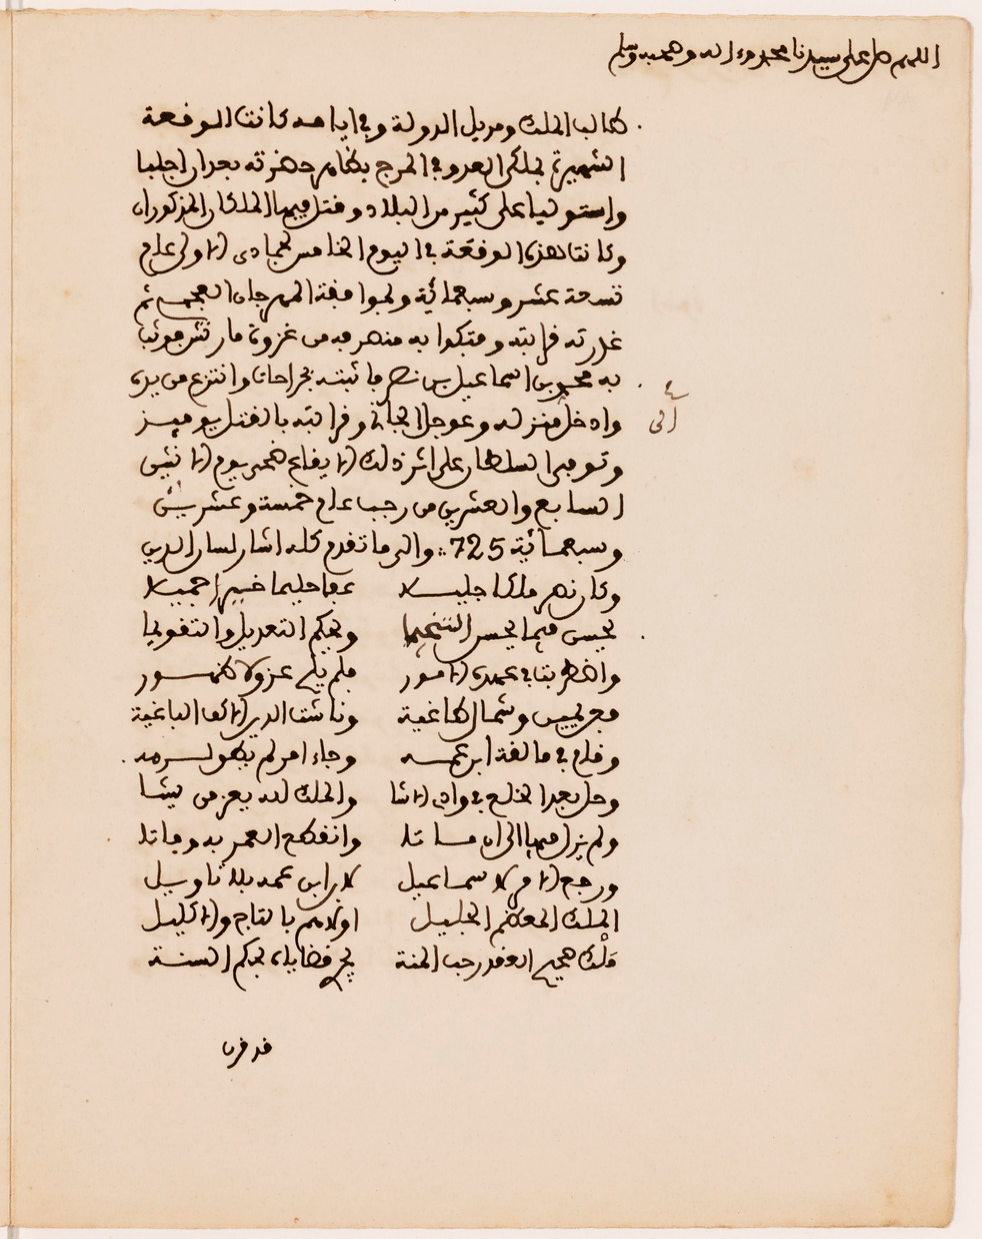 اللهم صل على سيدنا محمد وءاله وصحبه وسلم
طالب الملك ومزيل الدولة وفي ايامه كانت الوقعة
الشهيرة لملكي العدو في المرج بظاهر حضرته بعد ان اجلبا
واستوليا على كثير من البلاد وقتل فيها الملكان المذكوران
وكانت هذه الوقعة في اليوم الخامس لجمادى الاولى عام
تسعة عشر وسبعمائة ولموافقة المهرجان العجمي ثم
غدرته قرابته وفتكوا به منصرفه من غزوة مارتش موثبا
به محمد بن اسماعيل بن نصر فاثبته بجراحات وانتزع من يده
وادخل منزله وعوجل الجاني وقرابته بالقتل يوميذ
وتوفي السلطان على اثر ذلك الايقاع ضحى يوم الاثنين
السابع والعشرين من رجب عام خمسة وعشرين
وسبعمائة 725 والى ما تقدم كله اشار لسان الدين
وكان نصر ملكا جليلا عفا حليما خيرا جميلا
يحسن فيما يحسن التنجيما ويحكم التعديل والتقويما
واضطربت في عهده الامور فلم يلح عز ولا ظهور
فجر ليس وشمال طاغية وناشت الدين الاكف الباغية
وقام في مالقة ابن عمه وجاء امر لم يطق لرمه
وحل بعد الخلع في وادي الاشا والملك لله يعز من يشا
ولم يزل فيها الى ان ماتا وانقطع العمر به وفاتا
ورجع الامر لاسماعيل لابن ابن عمه بلا تاويل
الملك المعظم الجليل اولاهم بالتاج والاكليل
ملك صحيح العقد رحب المنة يجري قضاياه بحكم السنة